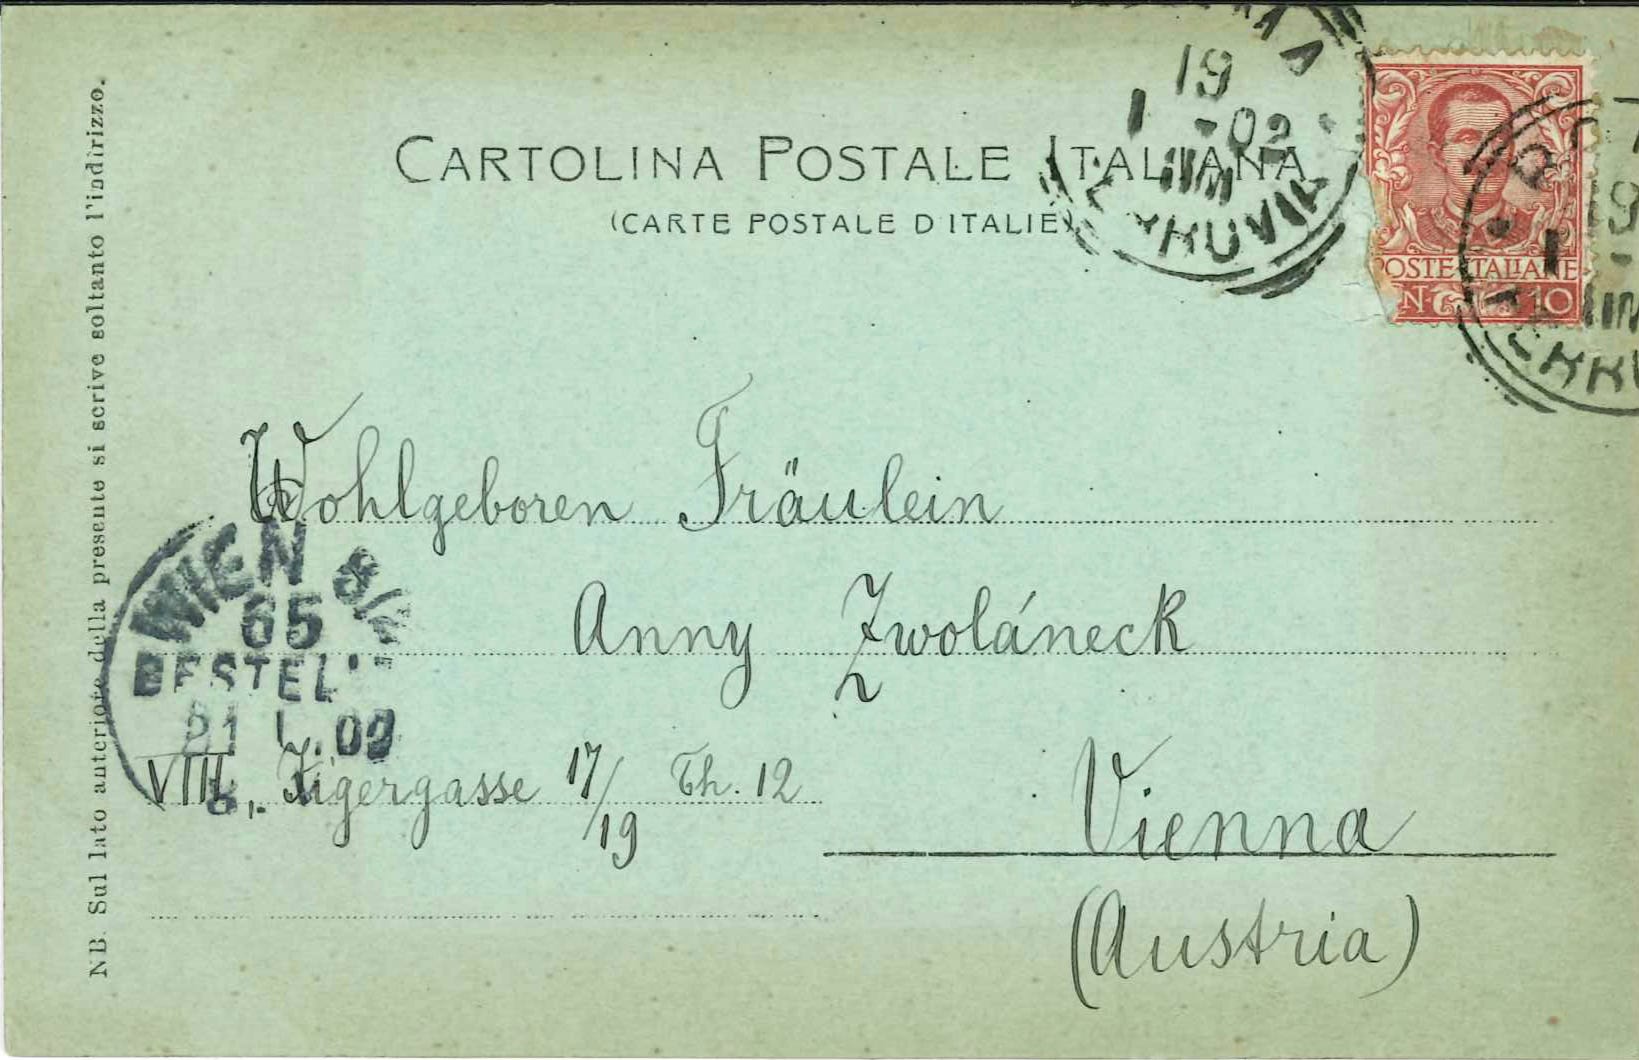 CARTOLINA POSTALE ITALIANA
(CARTE POSTALE D'ITALIE)
19
1 -02
FERROVIA
POSTE ITALIANE
10
19
1
Wohlgeboren Fräulein
Anny Zwoláneck
VIII., Zigergasse 17/19 Th. 12
Vienna
(Austria)
WIEN 8/
65
BESTELLT
21 I. 02
NB. Sul lato anteriore della presente si scrive soltanto l'indirizzo.